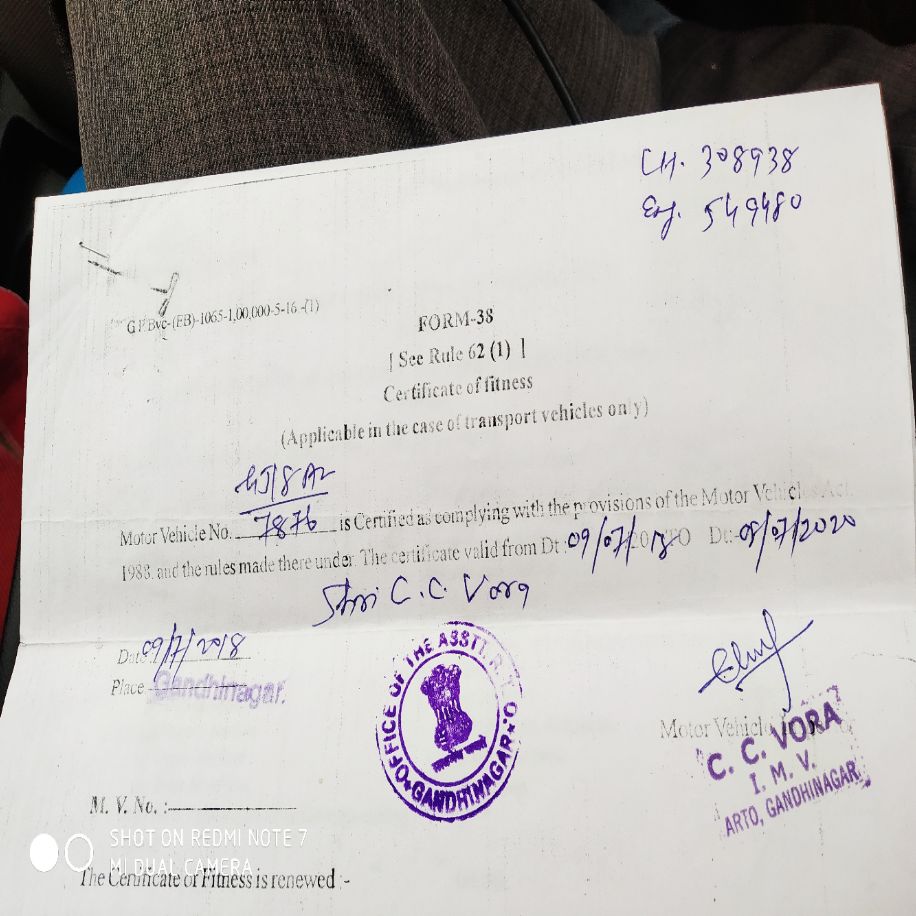 CH. 308938
Eng. 549480
G.P.Bvc-(EB)-1065-1,00,000-5-16.-(1)
FORM-38
[ See Rule 62 (1) ]
Certificate of fitness
(Applicable in the case of transport vehicles only)
GJ18AZ
Motor Vehicle No. 7876 is Certified as complying with the provisions of the Motor Vehicles Act,
1988, and the rules made there under. The certificate valid from Dt :09/07/2018 TO Dt:-08/07/2020
Shri C.C. Vora
Date 09/7/2018
Place Gandhinagar.
OFFICE OF THE ASSTT. R.T.O. GANDHINAGAR
Motor Vehicle
C. C. VORA
I. M. V.
ARTO, GANDHINAGAR
M. V. No. :
SHOT ON REDMI NOTE 7
MI DUAL CAMERA
The Certificate of Fitness is renewed :-